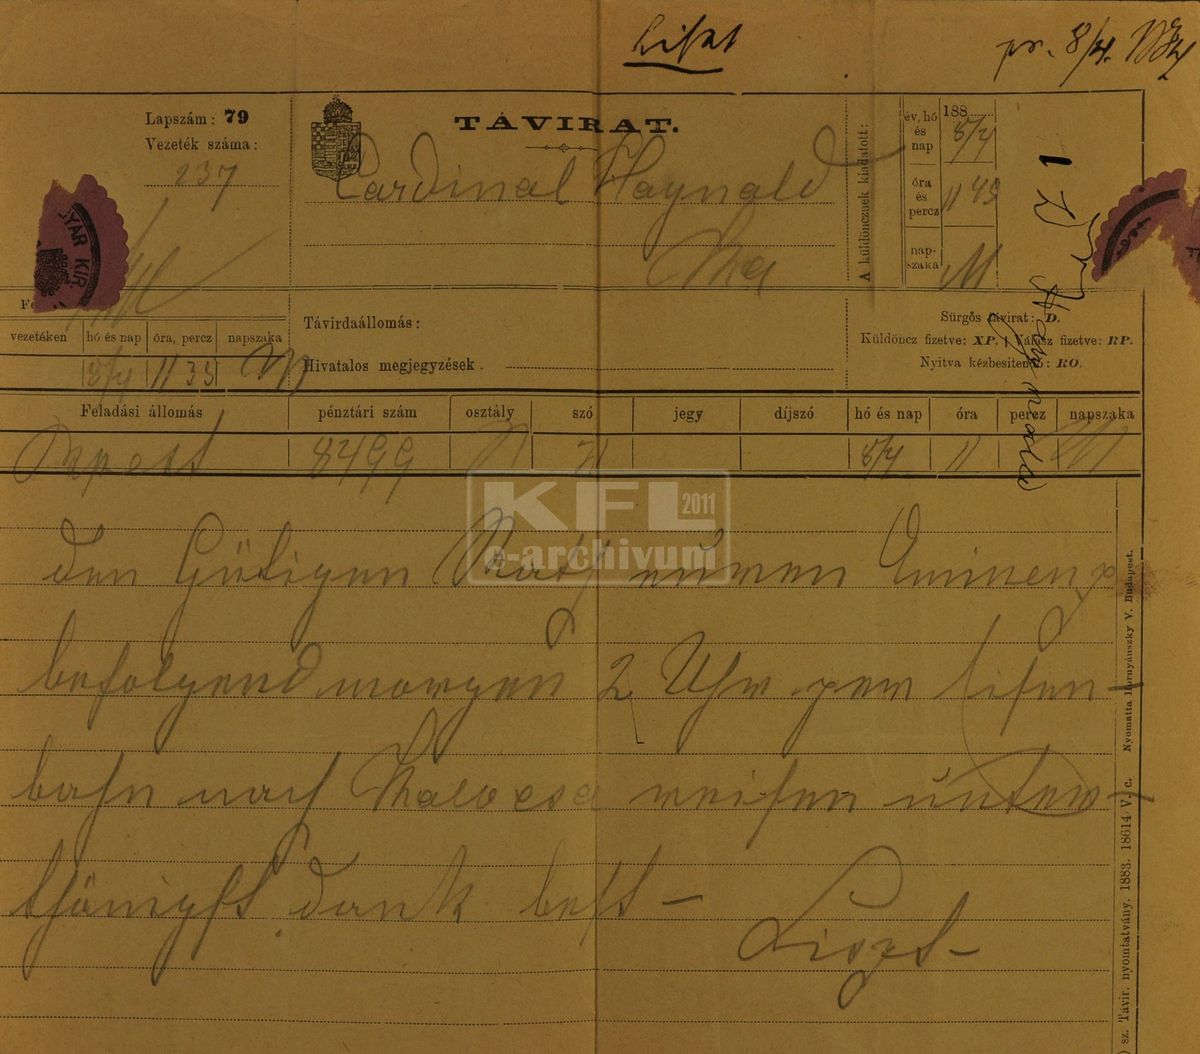 Liszt
pr. 8/4. 1884
Lapszám: 79
Vezeték száma:
237
TÁVIRAT.
Cardinal Haynald
A küldöncznek kiadatott:
év, hó és nap
188
8/4
óra és percz
11 45
nap-szaka
M
Haynald
YAR KIR.
vezetéken
hó és nap
óra, percz
napszaka
8/4
11 35
M
Távirdaállomás:
Hivatalos megjegyzések.
Sürgős távirat: D.
Küldöncz fizetve: XP. Válasz fizetve: RP.
Nyitva kézbesitendő: RO.
Feladási állomás
pénztári szám
osztály
szó
jegy
díjszó
hó és nap
óra
percz
napszaka
Bpest
8499
8/4
11
M
KFL 2011
e-archivum
den Gütigen Rath eurer Eminenz
befolgend morgen 2 Uhr per Eisen-
bahn nach Kalocsa reisen unter-
thänigst dank best –
Liszt –
) sz. Távir. nyomtatvány. 1883. 18614 V. c. Nyomatta Hornyánszky V. Budapest.